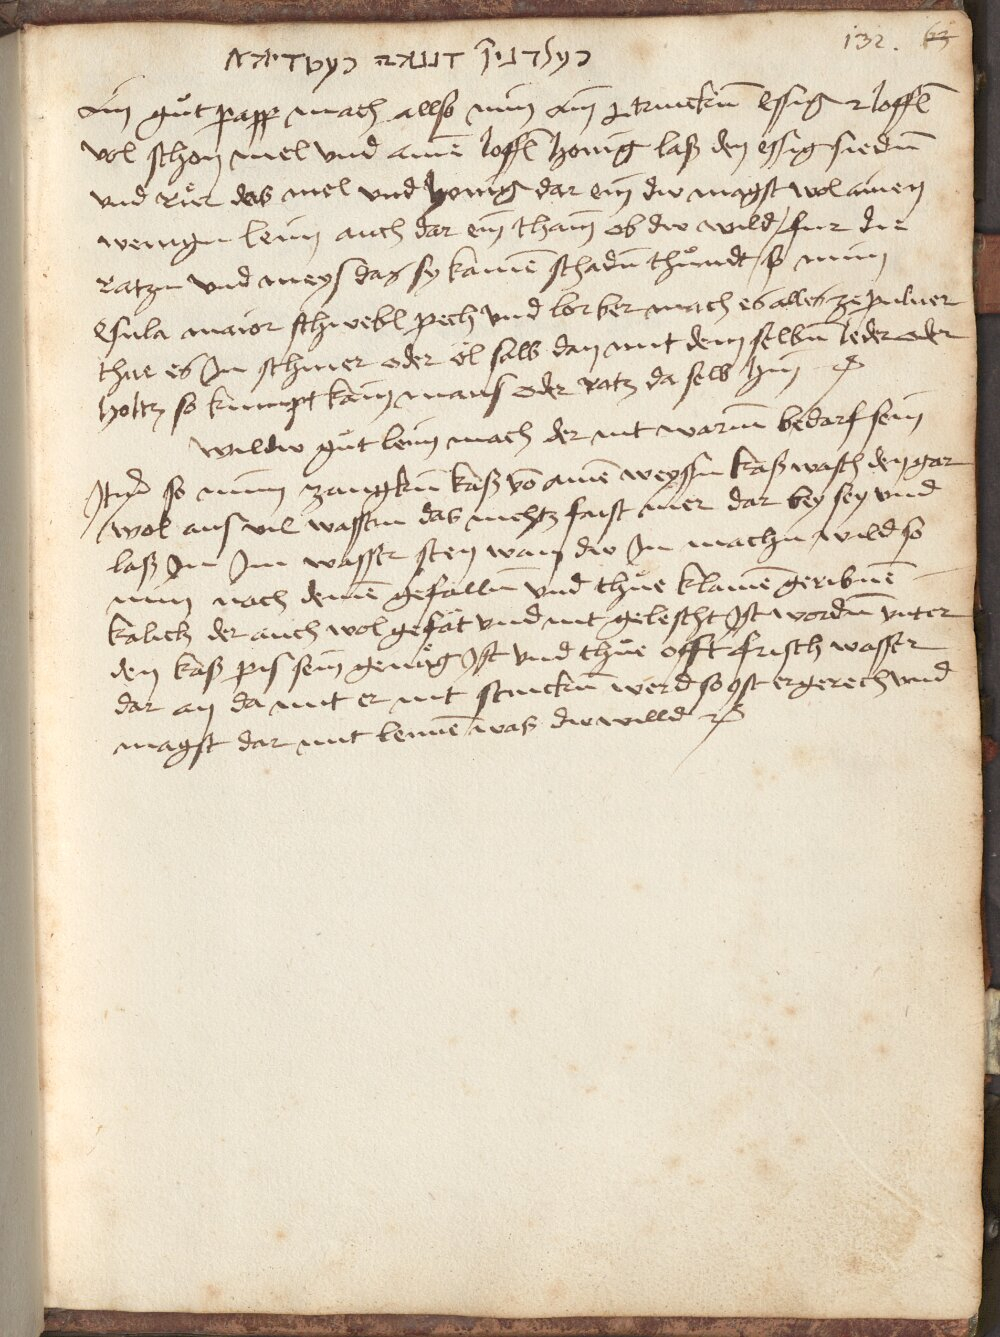 132. 63
Ain gůt papp mach allso nim ain trincken Essig 2 loffl
vol schon mel vnd ainē loffl honig laß den essig siedn̄
vnd růer das mel vnd honig dar ein du magst wol ainen
wenign leim auch dar ein thain ob du wild / fur die
Ratzn vnd meys das sy kainē schadn thůndt so nim
Esula maior schwebl pech vnd lorber mach es alles ze puluer
thue es In schmer oder öl salb dan mit dem selbn̄ leder oder
holtz so kumpt kain maus oder ratz da selb hin
wildu gůt leim mach der nit warm̄ bedarf sein
Itm̄ so nim kaß vō ainē weyssn kaß wasch den gar
wol aus vil wassern das nichtz faist mer dar bey sey vnd
laß In Im wasser sten wan du In machn wild so
nim nach deinē gefalln̄ vnd thůe klainē geribnē
kalich der auch wol gefät vnd nit gelescht Ist wordn̄ vnter
den kaß pis sein genůg Ist vnd thůe offt frisch wasser
dar an da mit er nit stinckn̄ werd so ist er gerech vnd
magst dar mit leimē was du willd